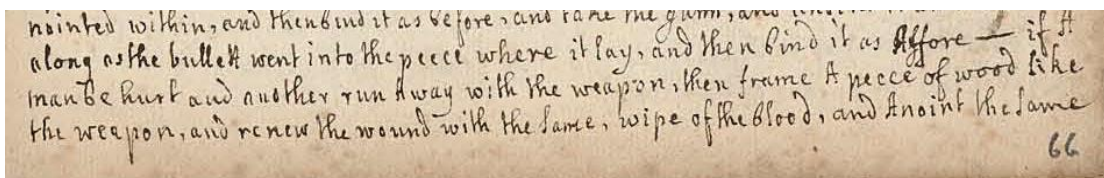 nointed within, and then bind it as before, and take the gunn, and
along as the bullett went into the peece where it lay, and then bind it as Affore — if A
man be hurt and another run Away with the weapon, then frame A peece of wood like
the weapon, and renew the wound with the same, wipe of the blood, and Anoint the same
66